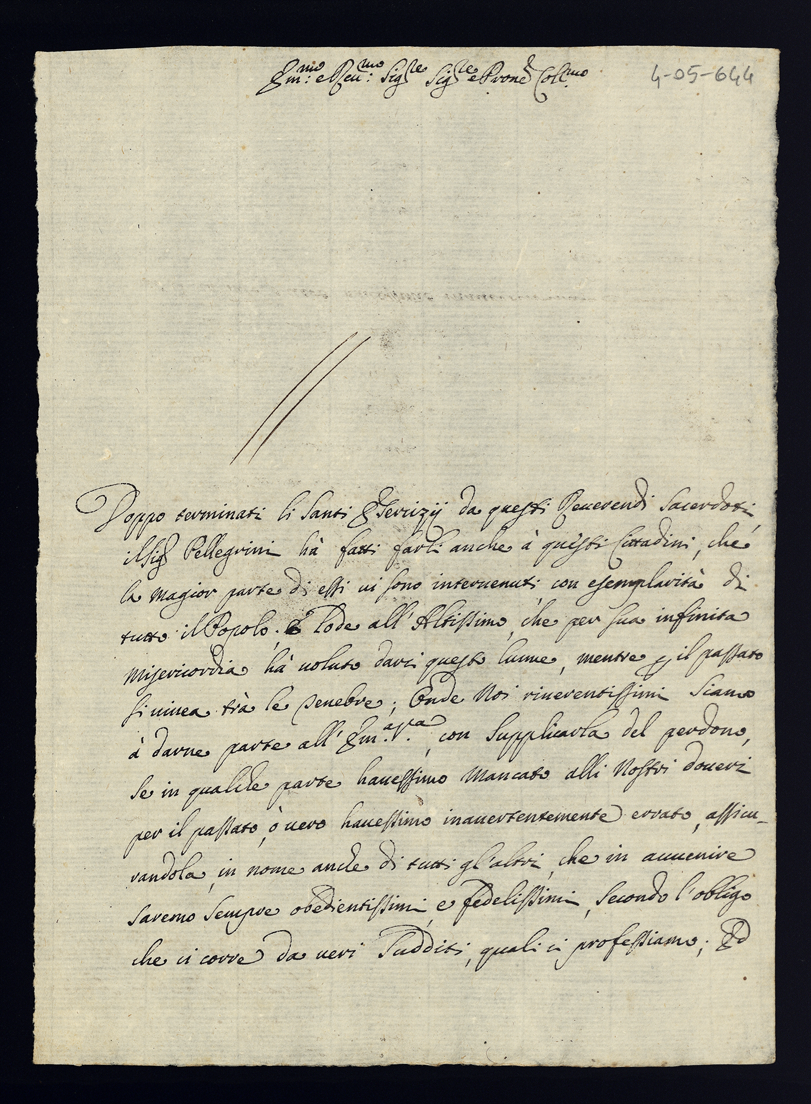 Em:mo e Reu:mo Sig:re Sig:re e Prone Col:mo
4-05-644
Doppo terminati li Santi Esercizij da questi Reuerendi Sacerdoti,
il Sig: Pellegrini hà fatti farli anche à questi Cittadini, che
la magior parte di essi ui sono interuenuti con esemplarità di
tutto il Popolo. E lode all'Altissimo, che per sua infinita
Misericordia hà uoluto darci questo lume, mentre p il passato
si uiuea trà le tenebre; Onde Noi riuerentissimi siamo
à darne parte all'Em:a V:ra, con Supplicarla del perdono,
se in qualche parte hauessimo mancato alli Nostri doueri
per il passato, ò uero hauessimo inauertentemente errato, assicu-
randola, in nome anche di tutti gl'altri, che in auuenire
saremo sempre obedientissimi, e fedelissimi, secondo l'obligo
che ci corre da ueri Sudditi, quali ci professiamo; Ed